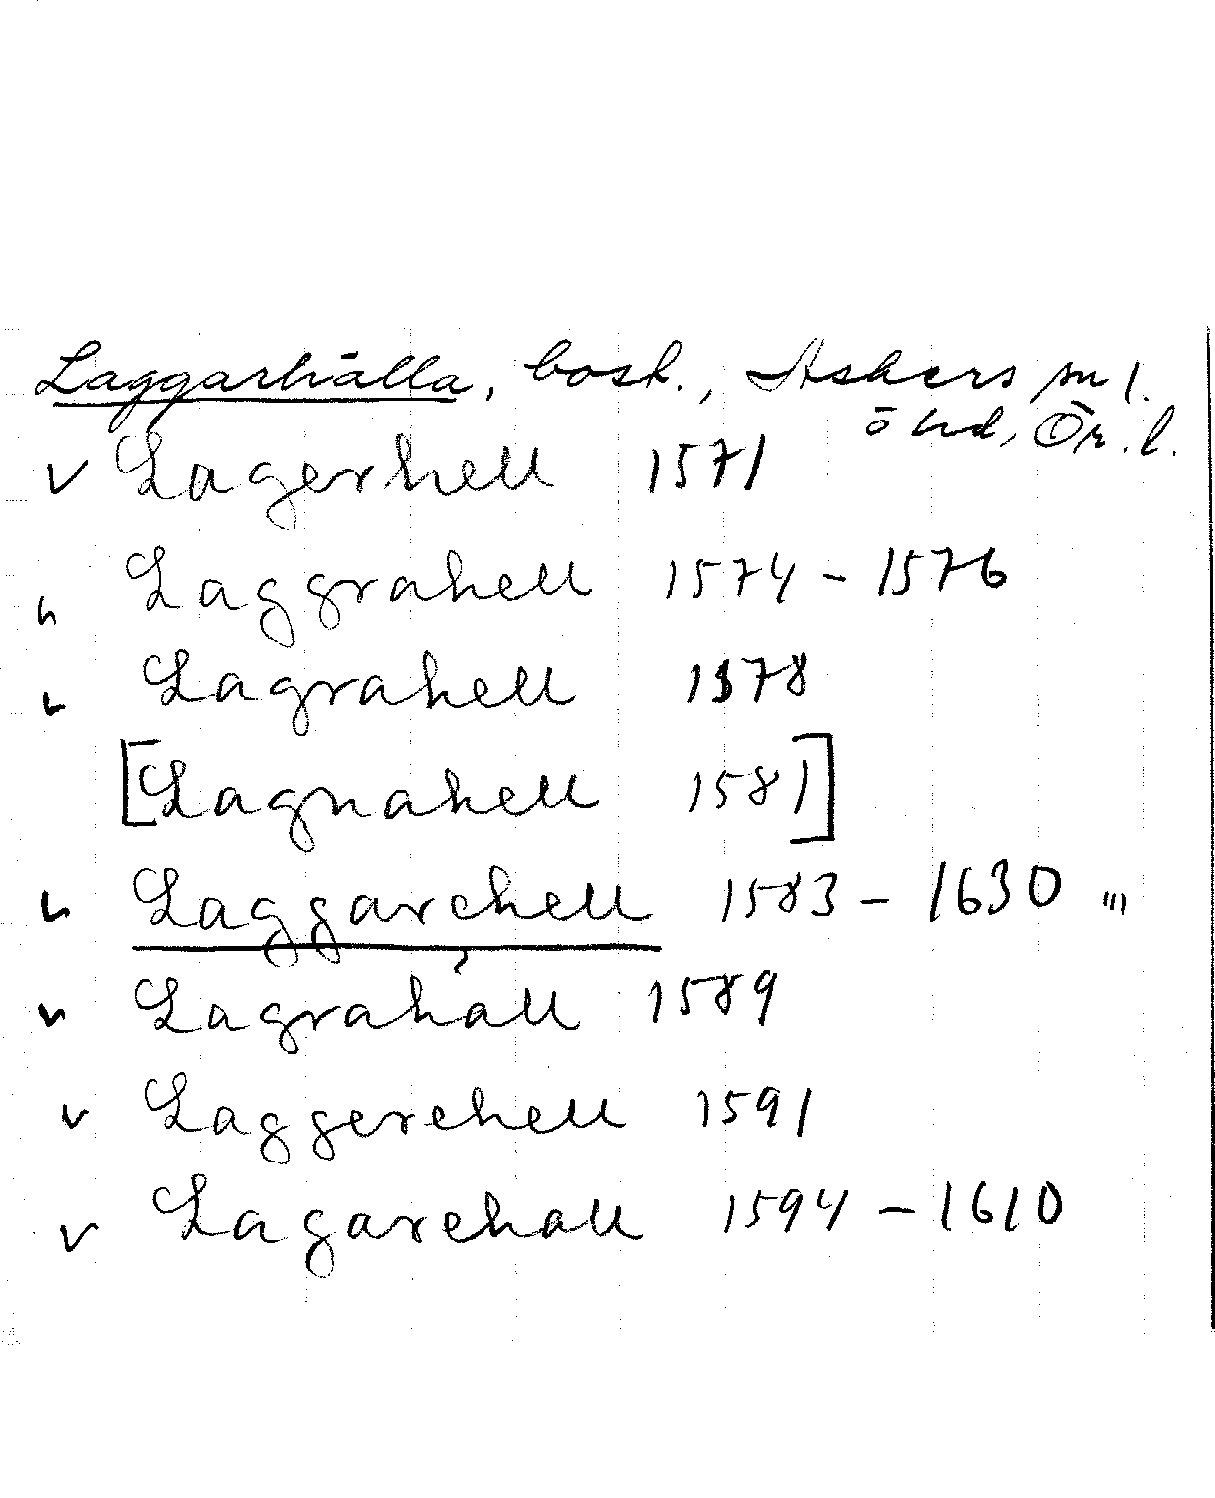 Laggarhälla, bosh., Askers sn l.
ö hd, Ör. l.
v Lagerhell 1571
v Laggrahell 1574 - 1576
v Lagrahell 1578
[Lagnahell 1581]
v Laggarehell 1583 - 1630 "'
v Lagrahall 1589
v Laggerehell 1591
v Lagarehall 1594 - 1610